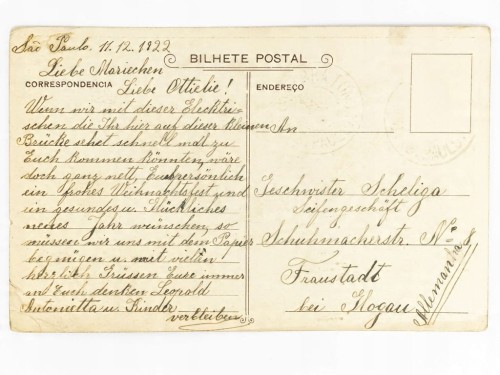 São Paulo. 11.12.1922
BILHETE POSTAL
Liebe Mariechen
CORRESPONDENCIA
Liebe Ottielie!
ENDEREÇO
Wenn wir mit dieser Elecktri-
schen die Ihr hier auf dieser kleinen
Brücke sehet schnell mal zu
Euch kommen könnten, wäre
doch ganz nett, Euch persönlich
ein frohes Weihnachtsfest und
ein gesundes u. Glückliches
neues Jahr wünschen, so
müssen wir uns mit dem Papier
begnügen u. mit vielen
herzlich Grüssen Eure immer
an Euch denken Leopold
Antonietta u. Kinder
verbleiben
An
Geschwister Scheliga
Seifengeschäft
Schuhmacherstr. No. 8
Fraustadt
bei Glogau
Allemanha